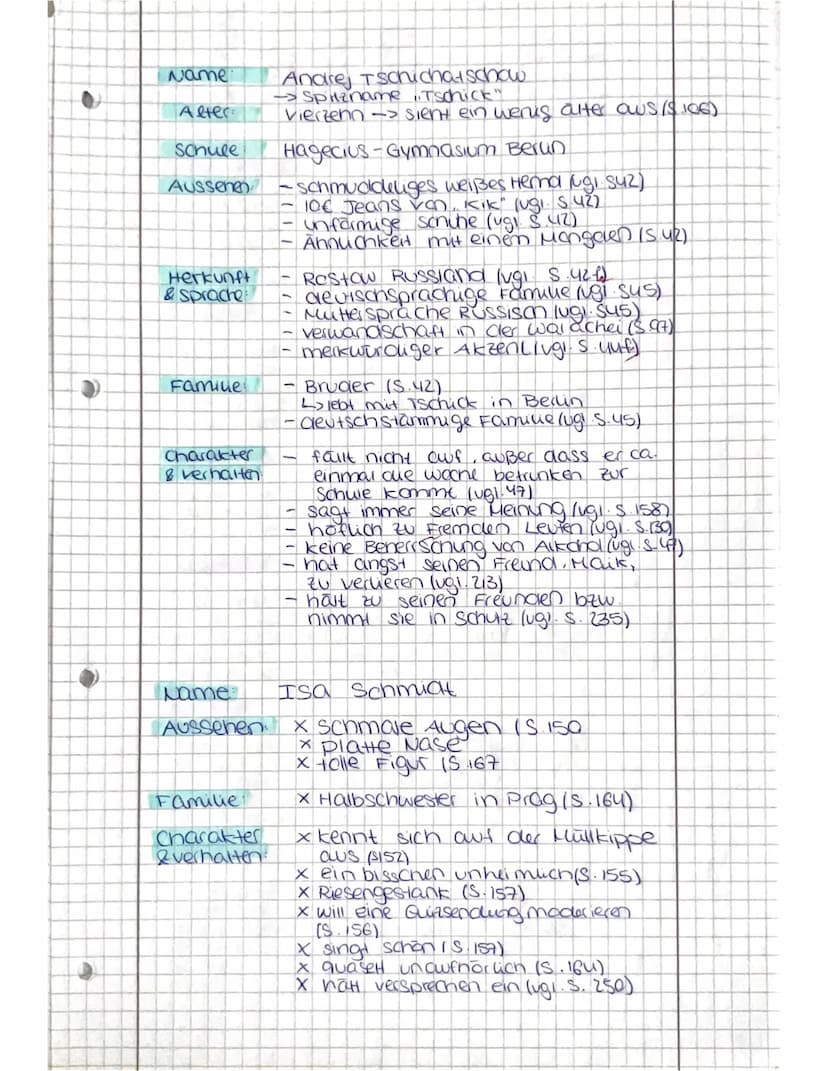 Name: Andrej Tschichatschow
-> Spitzname „Tschick"
Alter: Vierzehn --> sieht ein wenig älter aus (S.106)
Schule: Hagecius-Gymnasium Berlin
Aussehen: - schmuddeliges weißes Hemd (vgl S42)
- 10€ Jeans von „Kik" (vgl. S.42)
- unförmige schuhe (vgl. S.42)
- Ähnlichkeit mit einem Mongolen (S.42)
Herkunft - Rostow Russland (vgl. S.42f)
& Sprache: - deutschsprachige Familie (vgl. S45)
- Muttersprache Russisch (vgl. S45)
- verwandschaft in der Walachei (S.97)
- merkwürdiger Akzent (vgl. S.44f)
Familie: - Bruder (S.42)
↳ lebt mit Tschick in Berlin
- deutschstämmige Familie (vgl S.45)
Charakter - fällt nicht auf, außer dass er ca.
& verhalten: einmal die woche betrunken zur
Schule kommt (vgl.47)
- sagt immer seine Meinung (vgl. S.158)
- höflich zu Fremden Leuten (vgl. S.130)
- keine Beherrschung von Alkohol (vgl. S.47)
- hat angst seinen Freund, Maik,
zu verlieren (vgl.213)
- hält zu seinen Freunden bzw.
nimmt sie in Schutz (vgl. S. 235)
Name: Isa Schmidt
Aussehen: x Schmale Augen (S.150
x platte Nase
x tolle Figur (S.167
Familie: x Halbschwester in Prag (S.164)
Charakter x kennt sich auf der Müllkippe
& verhalten: aus (S152)
x ein bisschen unheimlich (S.155)
x Riesengestank (S.157)
x will eine Quizsendung moderieren
(S.156)
x singt schön (S.157)
x quasselt unaufhörlich (S.164)
x hält versprechen ein (vgl. S. 250)